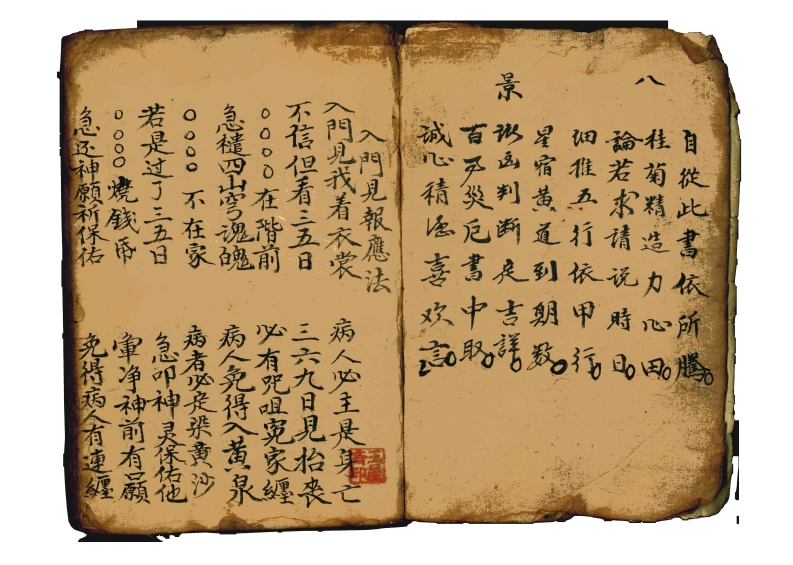 八景
自從此書依所騰
桂菊精造力心田
論若求請説時日
細推五行依甲行
星宿黄道到期数
凶判断定吉詳
百万災厄書中取
誠心積德喜欢言
入門見報應法
入門見我着衣裳 病人必主是身亡
不信但看三五日 三六九日見抬丧
〇〇〇〇在階前 必有咒咀冤家纏
急禳四山穹魂魄 病人免得入黄泉
〇〇〇〇不在家 病者必定染黄沙
若是过了三五日 急叩神灵保佑他
〇〇〇〇燒錢帋 當净神前有口願
急还神願祈保佑 免得病人有連纏